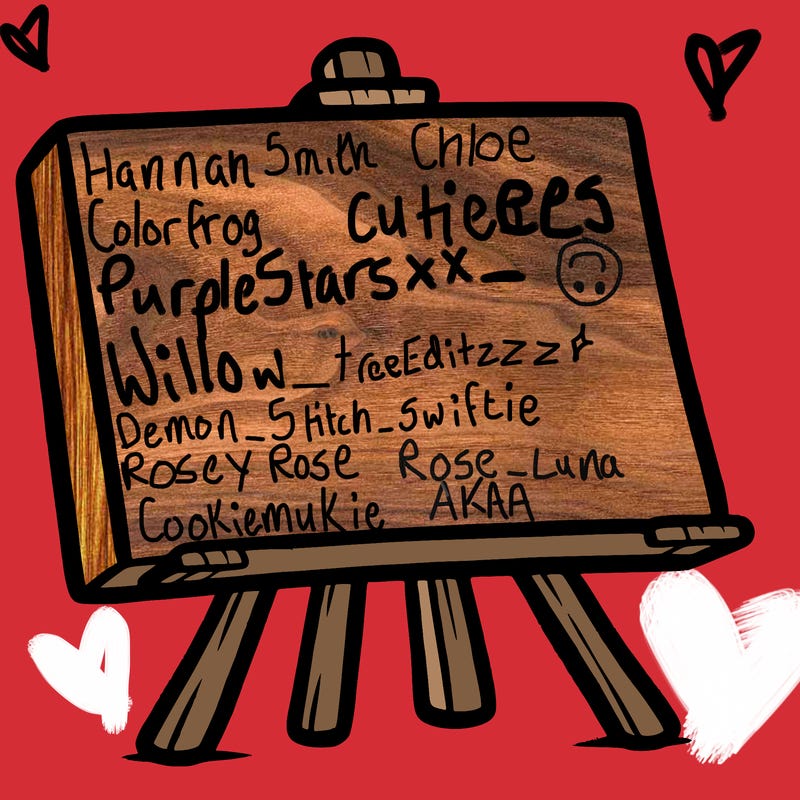 Hannah Smith Chloe
Colorfrog cutieees
PurpleStarsxx_ 🙃
Willow_treeEditzzz
Demon_Stitch_swiftie
Rosey Rose Rose_Luna
Cookiemukie AKAA